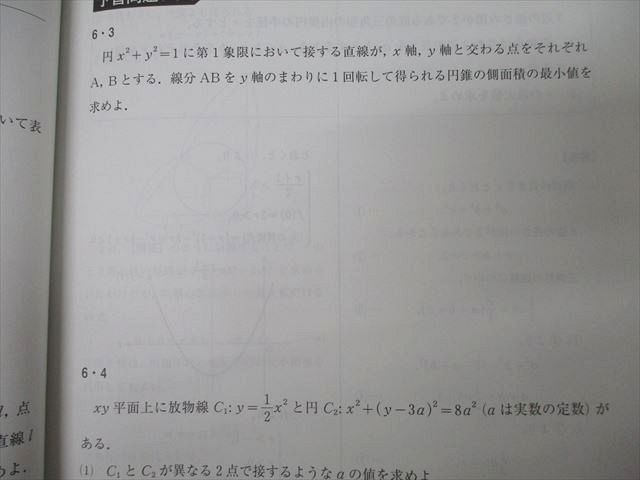 予習問題
6・3
円 x²+y²=1 に第1象限において接する直線が, x 軸, y 軸と交わる点をそれぞれ
A, B とする. 線分 AB を y 軸のまわりに1回転して得られる円錐の側面積の最小値を
求めよ.
いて表
6・4
xy 平面上に放物線 C₁: y=1/2x² と円 C₂: x²+(y-3a)²=8a² (a は実数の定数) が
ある.
(1) C₁ と C₂ が異なる2点で接するような a の値を求めよ
, 点
直線 l
よ.